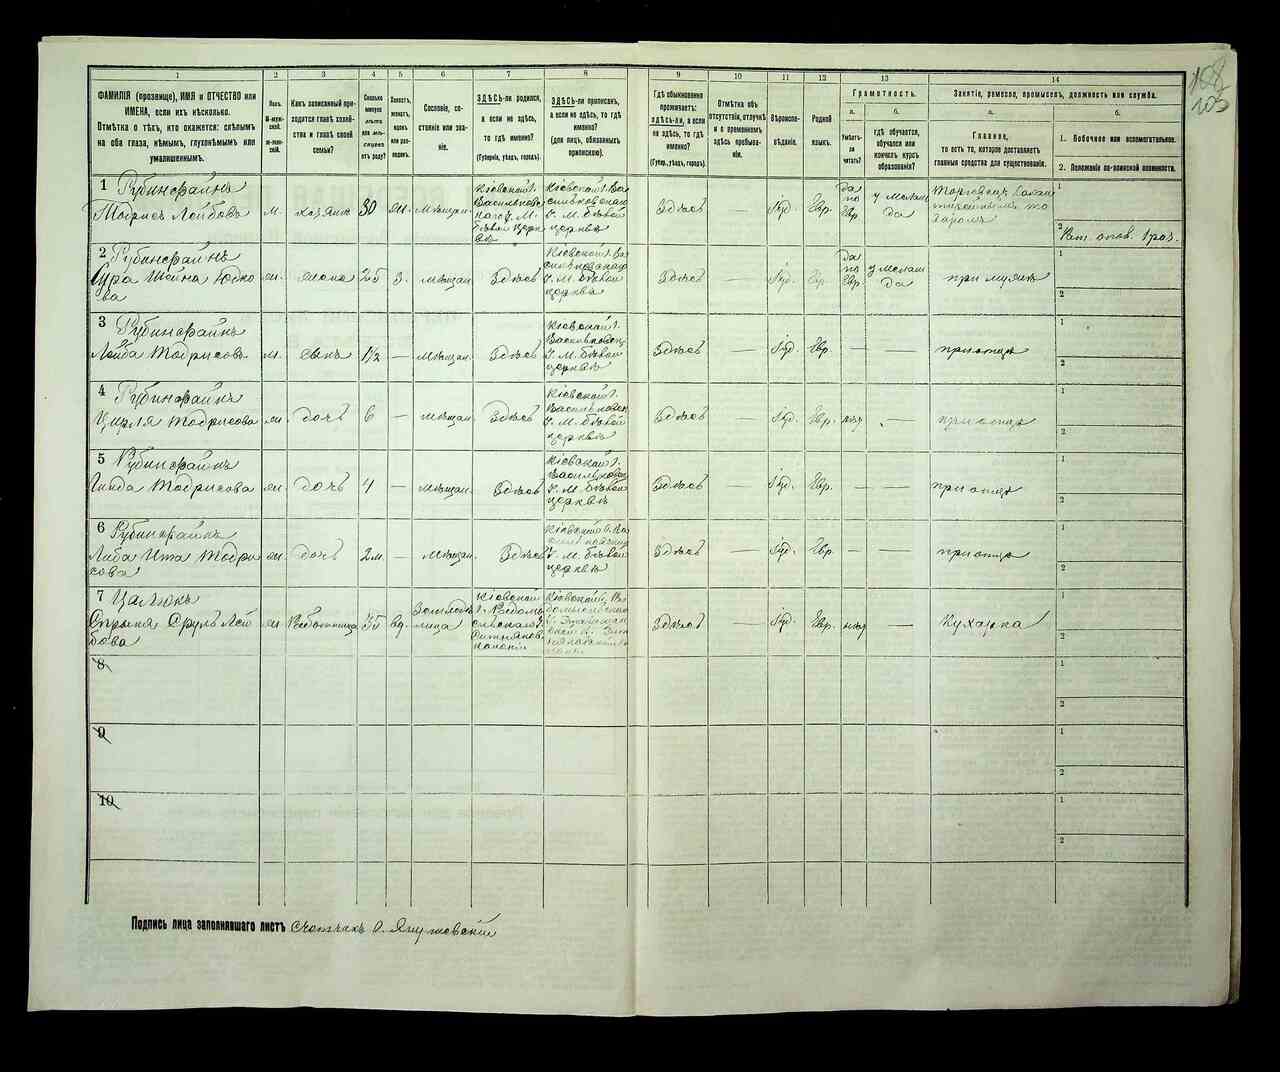 108
103
1
2
3
4
5
6
7
8
9
10
11
12
13
14
ФАМИЛІЯ (прозвище), ИМЯ и ОТЧЕСТВО или
ИМЕНА, если ихъ нѣсколько.
Отмѣтка о тѣхъ, кто окажется: слѣпымъ
на оба глаза, нѣмымъ, глухонѣмымъ или
умалишеннымъ.
Полъ.
М-муж-
ской.
Ж-жен-
скій.
Какъ записанный при-
ходится главѣ хозяй-
ства и главѣ своей
семьи?
Сколько
минуло
лѣтъ
или мѣ-
сяцевъ
отъ роду?
Холостъ,
женатъ,
вдовъ
или раз-
веденъ.
Сословіе, со-
стояніе или зва-
ніе.
ЗДѢСЬ-ли родился,
а если не здѣсь,
то гдѣ именно?
(Губернія, уѣздъ, городъ).
ЗДѢСЬ-ли приписанъ,
а если не здѣсь, то гдѣ
именно?
(для лицъ, обязанныхъ
припискою).
Гдѣ обыкновенно
проживаетъ:
здѣсь-ли, а если
не здѣсь, то гдѣ
именно?
(Губер., уѣздъ, городъ).
Отмѣтка объ
отсутствіи, отлучкѣ
и о временномъ
здѣсь пребыва-
ніи.
Вѣроиспо-
вѣданіе.
Родной
языкъ.
Грамотность.
а.
Умѣетъ-
ли
читать?
б.
гдѣ обучается,
обучался или
кончилъ курсъ
образованія?
Занятіе, ремесло, промыселъ, должность или служба.
а.
Главное,
то есть то, которое доставляетъ
главныя средства для существованія.
б.
1. Побочное или вспомогательное.
2. Положеніе по воинской повинности.
1 Рубинфайнъ
Тодрисъ Лейбовъ
м.
хозяинъ
30
ж.
Мѣщан.
Кіевской г.
Васильковс
каго у. М.
бѣлой церк
вѣ
Кіевской г. Ва
сильковскаго
у. М. бѣлой
церквѣ
Здѣсь
—
Іуд.
Евр.
да
по
Евр
у мелам
да
Торговецъ
1
2 Рат. опол. 1 раз.
2 Рубинфайнъ
Сура Шейна Іодко
ва
ж.
жена
25
з.
мѣщан
Здѣсь
Кіевской г. Ва
сильковскаго
у. М. бѣлой
церквѣ
Здѣсь
—
Іуд.
Евр
да
по
Евр
у мелам
да
при мужѣ
1
2
3 Рубинфайнъ
Лейба Тодрисовъ
м.
сынъ
1½
—
мѣщан.
Здѣсь
Кіевской г.
Васильковск
у. М. бѣлой
церквѣ
Здѣсь
—
Іуд.
Евр.
—
—
при отцѣ
1
2
4 Рубинфайнъ
Цирля Тодрисова
ж.
дочь
6
—
мѣщан
Здѣсь
Кіевской г.
Васильковск
у. М. бѣлой
церквѣ
Здѣсь
—
Іуд.
Евр.
нѣт
—
при отцѣ
1
2
5 Рубинфайнъ
Гинда Тодрисова
ж
дочь
4
—
мѣщан.
Здѣсь
Кіевской г.
Васильковск
у. М. бѣлой
церквѣ
Здѣсь
—
Іуд.
Евр.
—
—
при отцѣ
1
2
6 Рубинфайнъ
Либа Ита Тодри
сова
ж.
дочь
2 м.
—
Мѣщан.
Здѣсь
Кіевской г. Ва
у. М. бѣлой
церквѣ
Здѣсь
—
Іуд.
Евр.
—
—
при отцѣ
1
2
7
Сруль Лей
бова
ж
Работница
35
вд.
Кіевской
г. Радомы
сльскаго у.
Кіевской г. Ра
домысльскаго
Здѣсь
—
Іуд.
Евр.
нѣт
—
Кухарка
1
2
8
1
2
9
1
2
10
1
2
Подпись лица заполнявшаго листъ Счетчикъ